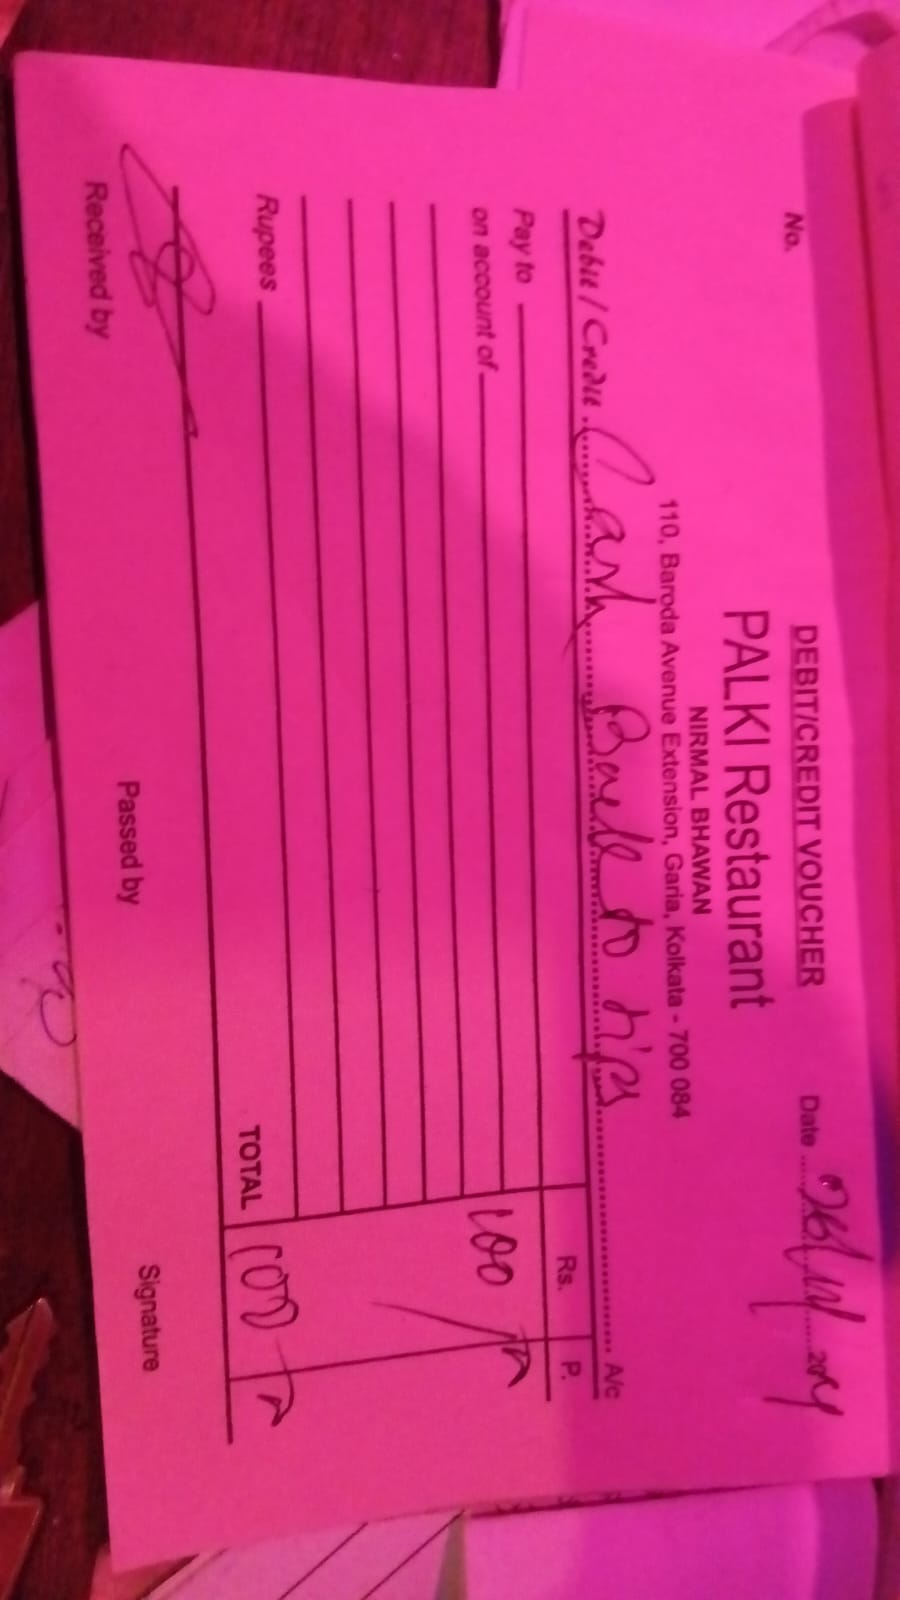 DEBIT/CREDIT VOUCHER
PALKI Restaurant
NIRMAL BHAWAN
110, Baroda Avenue Extension, Garia, Kolkata - 700 084
No. Date 26/11/2024
Debit / Credit Cash Back to A/c
Rs. P.
Pay to
on account of 100
Rupees TOTAL 100
Received by Passed by Signature